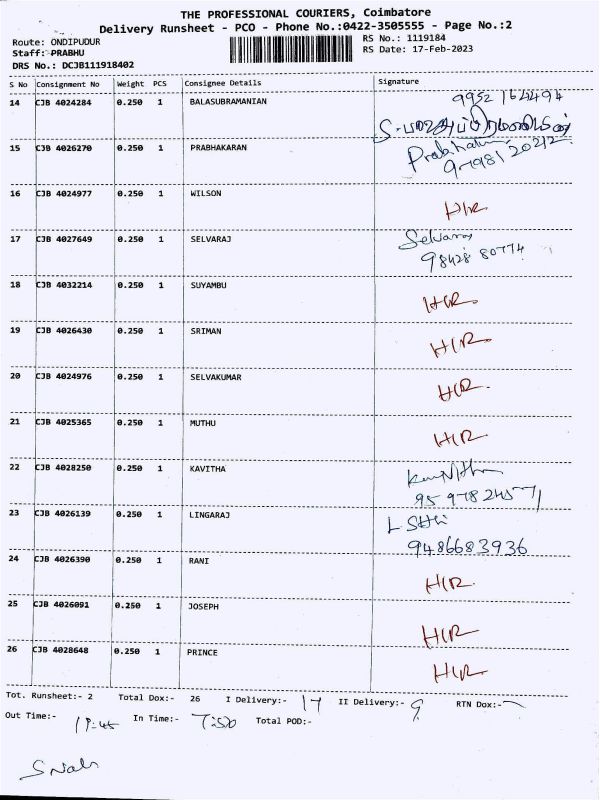 THE PROFESSIONAL COURIERS, Coimbatore
Delivery Runsheet - PCO - Phone No.:0422-3505555 - Page No.:2
Route: ONDIPUDUR
RS No.: 1119184
Staff: PRABHU
RS Date: 17-Feb-2023
DRS No.: DCJB111918402
S No Consignment No Weight PCS Consignee Details Signature
14 CJB 4024284 0.250 1 BALASUBRAMANIAN 9952164494
S. பாலசுப்பிரமணியன்
15 CJB 4026270 0.250 1 PRABHAKARAN Prabhakaran
9798120212
16 CJB 4024977 0.250 1 WILSON H/R
17 CJB 4027649 0.250 1 SELVARAJ Selvaraj
98428 80774
18 CJB 4032214 0.250 1 SUYAMBU H/R
19 CJB 4026430 0.250 1 SRIMAN H/R
20 CJB 4024976 0.250 1 SELVAKUMAR H/R
21 CJB 4025365 0.250 1 MUTHU H/R
22 CJB 4028250 0.250 1 KAVITHA
95978 24571
23 CJB 4026139 0.250 1 LINGARAJ
9486683936
24 CJB 4026390 0.250 1 RANI H/R
25 CJB 4026091 0.250 1 JOSEPH H/R
26 CJB 4028648 0.250 1 PRINCE H/R
Tot. Runsheet:- 2 Total Dox:- 26 I Delivery:- 17 II Delivery:- 9 RTN Dox:-
Out Time:- In Time:- 7:50 Total POD:-